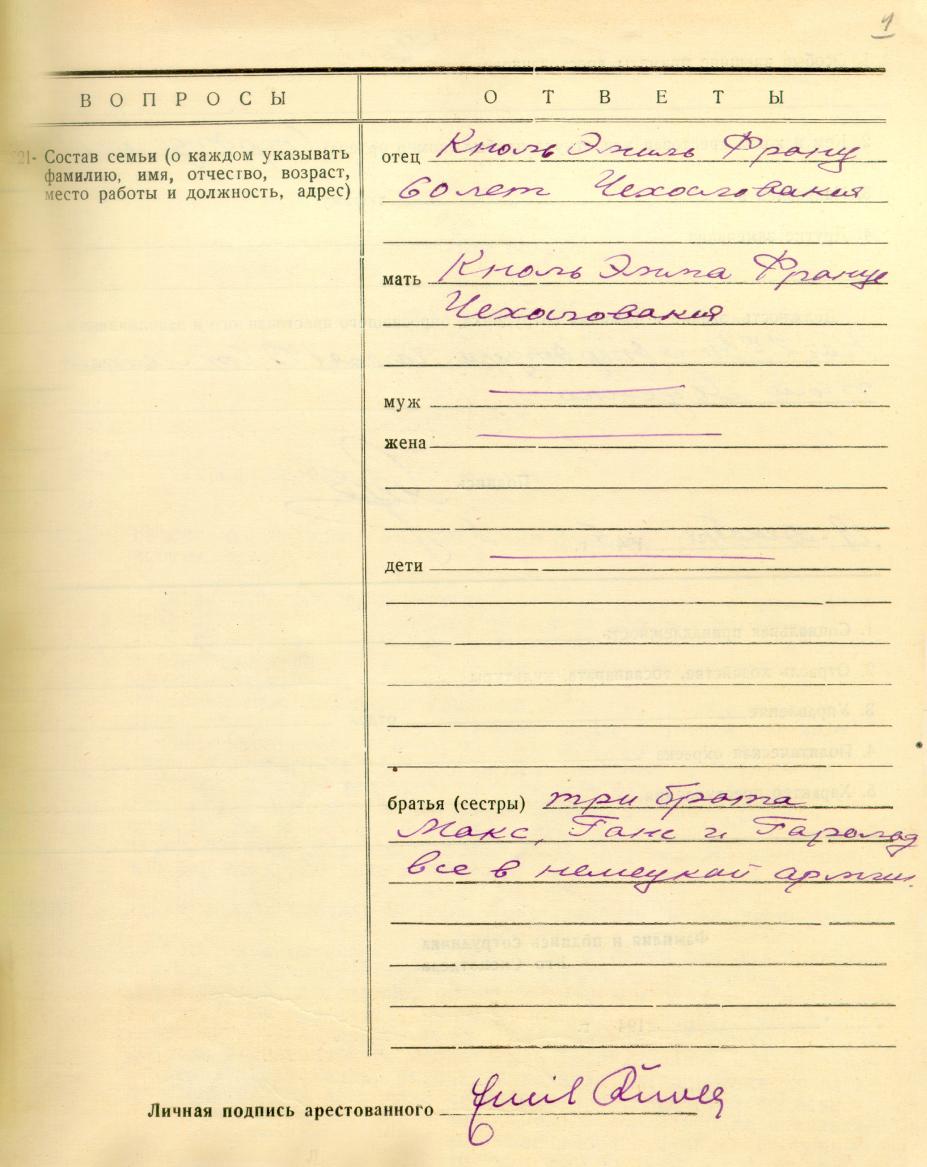 1
ВОПРОСЫ ОТВЕТЫ
21- Состав семьи (о каждом указывать
фамилию, имя, отчество, возраст,
место работы и должность, адрес)
отец Кноль Эмиль Франц
60 лет Чехословакия
мать Кноль Эмма Франце
Чехословакия
муж
жена
дети
братья (сестры) три брата
Макс, Ганс и Гарольд
все в немецкой армии.
Личная подпись арестованного Emil Knoll